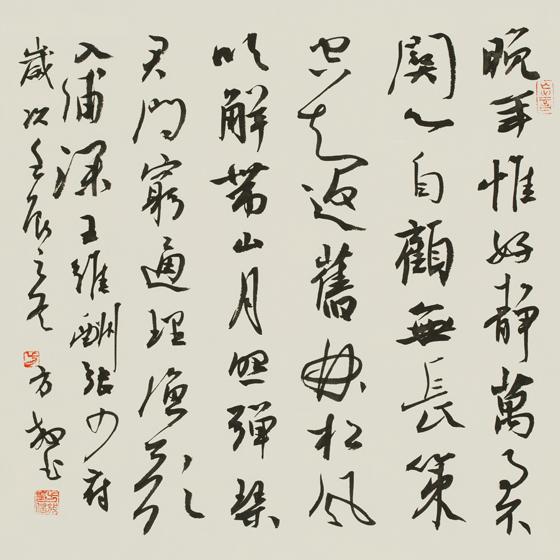 晚年惟好靜萬事不
關心自顧無長策
空知返舊林松風
吹解帶山月照彈琴
君問窮通理漁歌
入浦深王維酬張少府
歲次壬辰之冬方